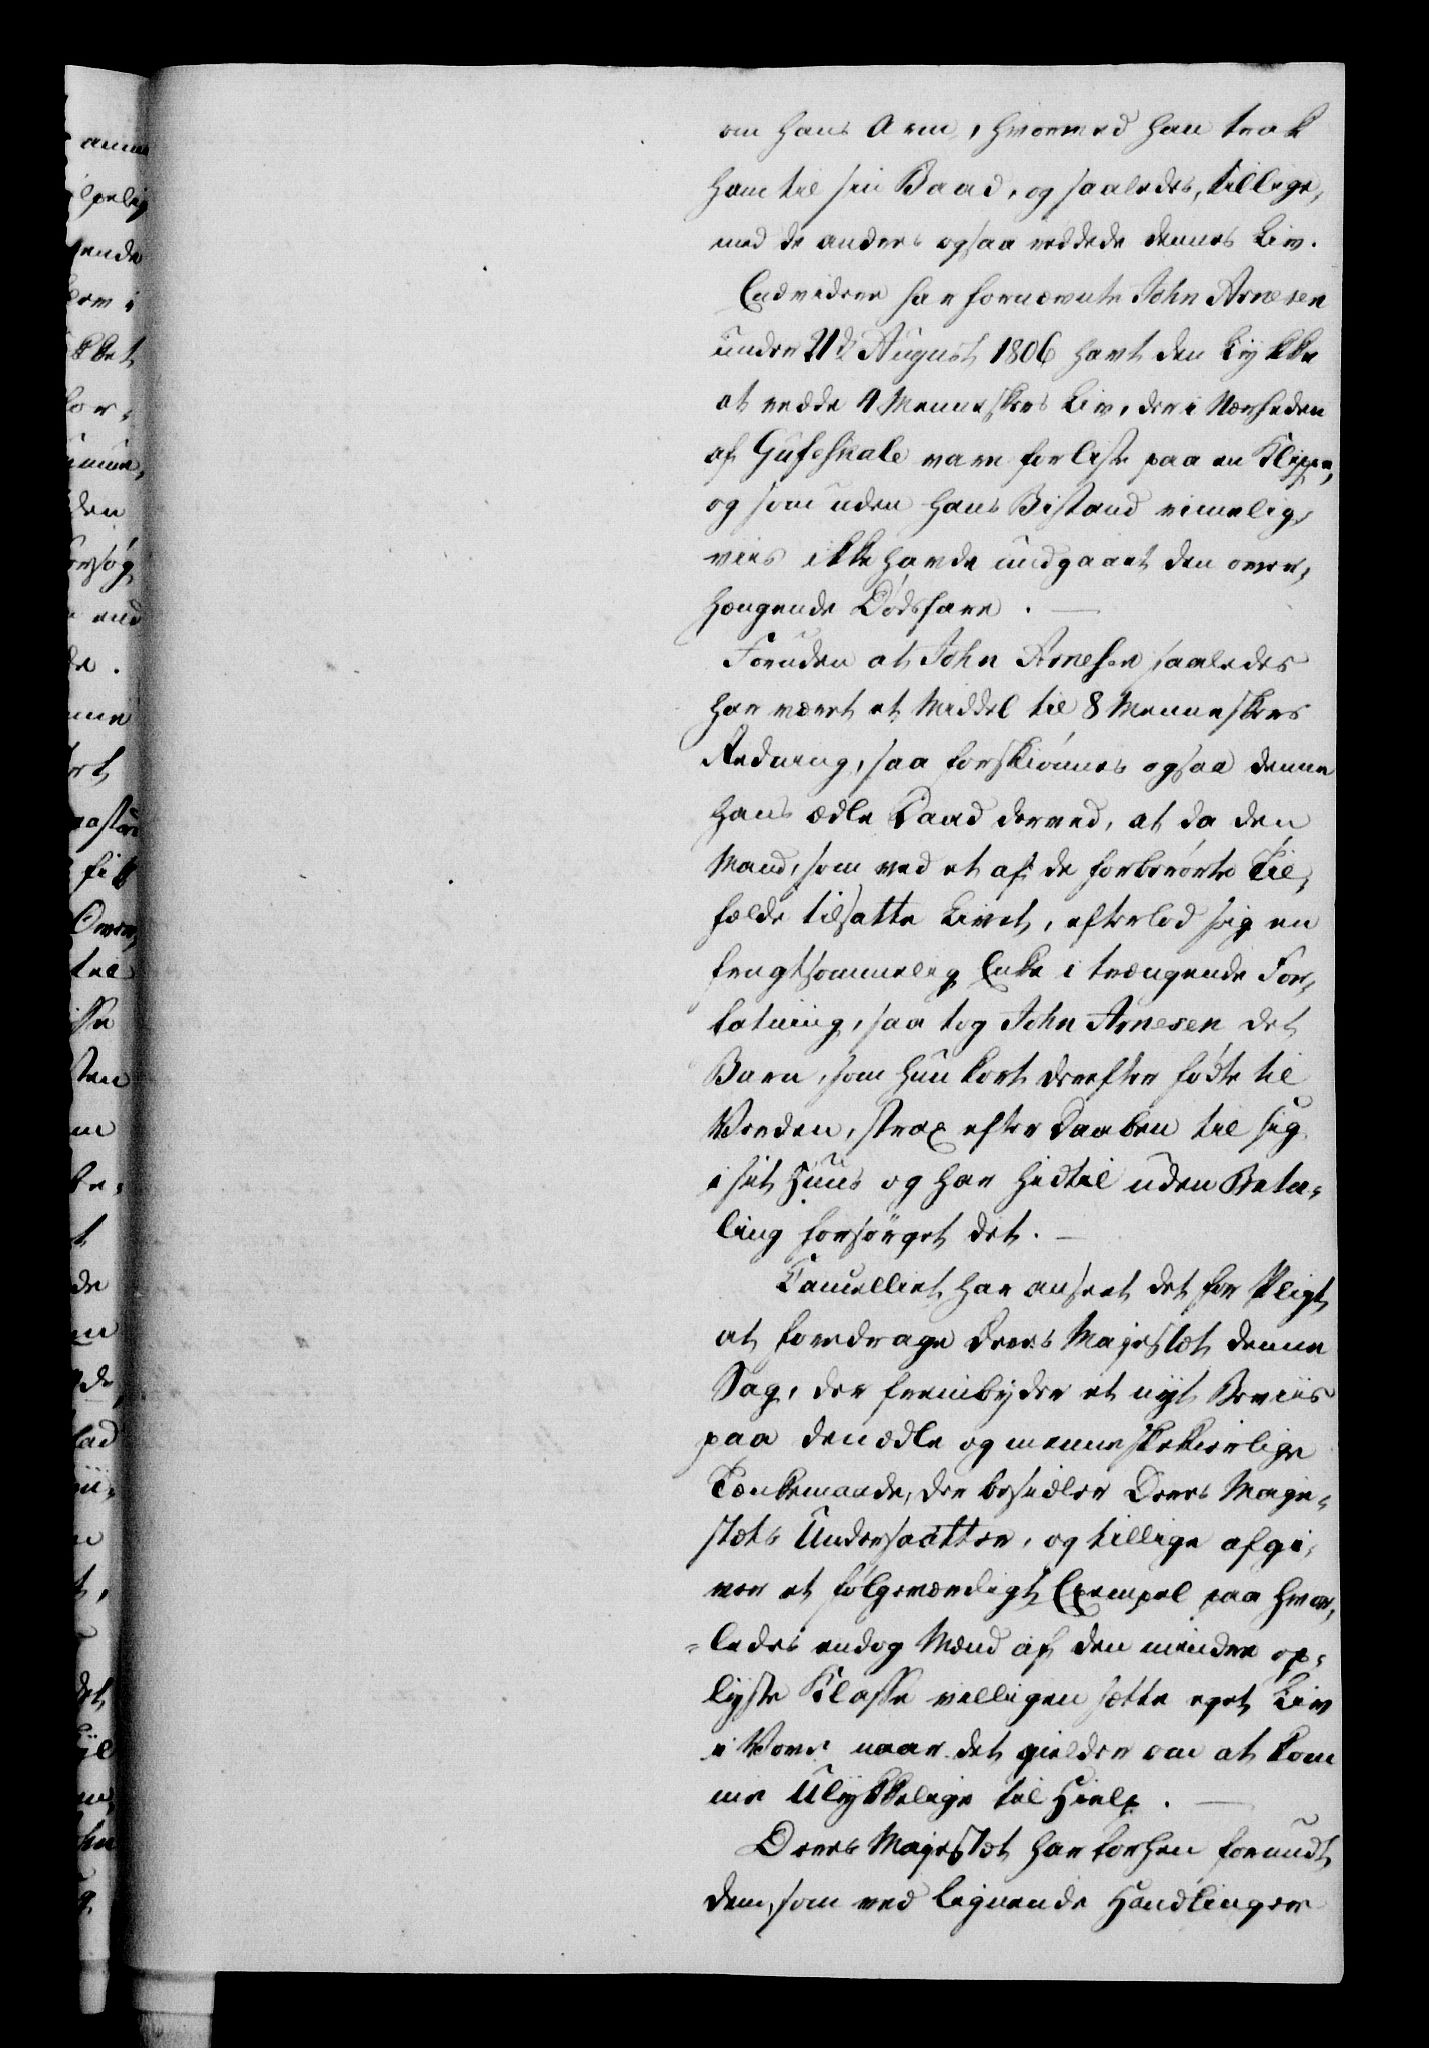 om hans Arm, hvormed han trak
ham til sin Baad, og saaledes, tillige,
med de andres ogsaa reddede dennes Liv.
Endvidere har fornævnte John Arnesen
under 21de August 1806 havt den Lykke
at redde 4 Menneskers Liv, der i Nærheden
af Gufeskale vare forliste paa en Klippe,
og som uden hans Bistand rimelig,
viis ikke havde undgaaet den over,
hængende Dødsfare. —
Foruden at John Arnesen saaledes
har været et Middel til 8 Menneskers
Redning, saa forskiønnes ogsaa denne
hans ædle Daad derved, at da den
Mand, som ved et af de forberørte Til,
fælde tilsatte Livet, efterlod sig en
frugtsommelig Enke i trængende For,
fatning, saa tog John Arnesen det
Barn, som hun kort derefter fødte til
Verden, strax efter Daaben til sig
i sit Huus og har hidtil uden Beta-
ling forsørget det. —
Cancelliet har anseet det for Pligt
at foredrage Deres Majestæt denne
Sag, der frembyder et nyt Beviis
paa den ædle og menneskekierlige
Tænkemaade, der besieler Deres Maje-
stæts Undersaatter, og tillige afgi,
ver et følgeværdigt Exempel paa hvor,
=ledes endog Mænd af den mindre op-
lyste Klasse villigen sætte eget Liv
i Vove naar det gielder om at kom
me Ulykkelige til Hielp. —
Deres Majestæt har forhen forundt
dem, som ved lignende Handlinger